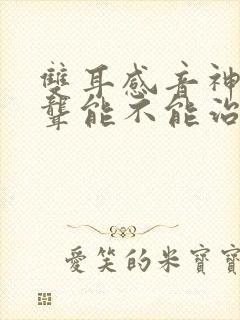 雙耳感音神
聾能不能治
愛笑的米寶寶